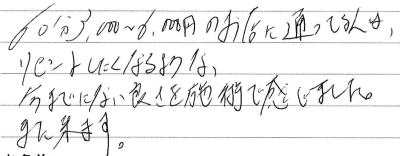 60分3,000〜6,000円のお店に通ってるんは、
リピートしたくなるような、
今までにない良さを施術で感じました。
また来ます。